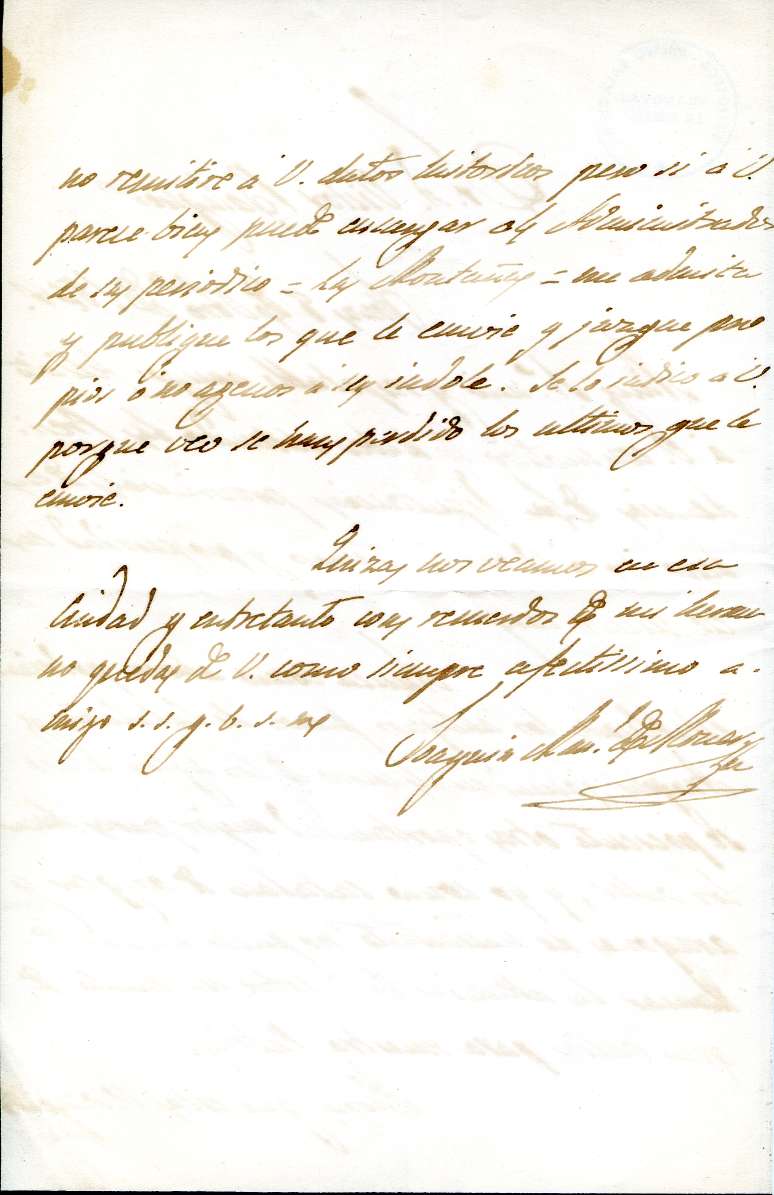 no remitire á V. datos historicos pero si á V.
parece bien puede encargar al Administrador
de su periodico = La Montaña = me admita
y publique los que le envie y juzgue pro
pios ó no agenos á su indole. Se lo indico á V.
porque veo se han perdido los ultimos que le
envie.
Quizas nos veamos en esa
Ciudad y entretanto con recuerdos de mi herma
no queda de V. como siempre afectissimo a-
migo s. s. q. b. s. m
Joaquin Mn. de Moner